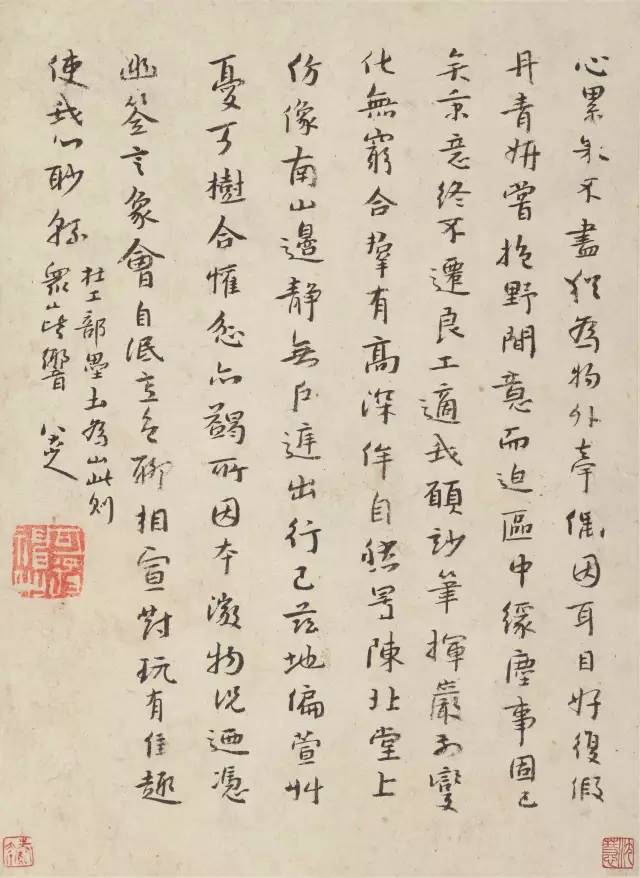 心累不盡為物外牽偶因耳目好復假
丹青妍嘗抱野間意而迫區中緣塵事固已
矣秉意終不遷良工適我願妙筆揮嚴變
化無窮合羣有高深侔自然陳北堂上
仿像南山邊靜無戶庭出行已茲地偏萱艸
憂可樹合懽忿亦蠲所因本微物況迺憑
幽筌言象會自泯意色聊相宣對玩有佳趣
使我心眇綿
杜工部壘土為山此則
眾山響
八大山人